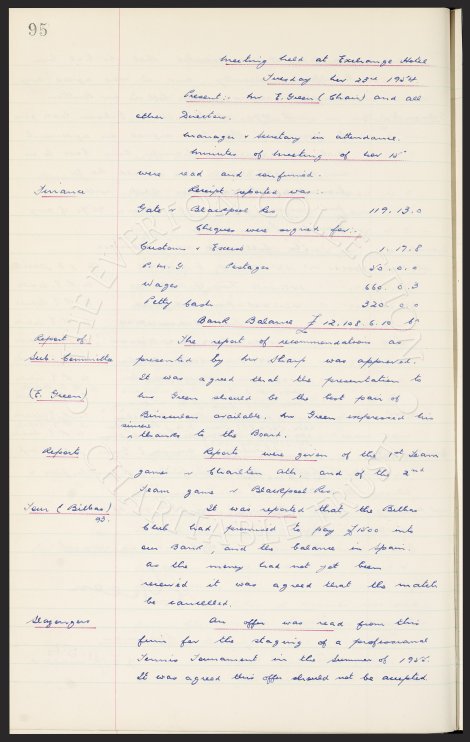 95
Meeting held at Exchange Hotel
Tuesday Nov 23rd 1954
Present:- Mr E. Green (Chair) and all
other Directors.
Manager & Secretary in attendance.
Minutes of Meeting of Nov 15th
were read and confirmed.
Finance
Receipt reported was:-
Gate v Blackpool Res 119. 13. 0
Cheques were signed for:-
Customs & Excise 1. 17. 8
P.M.G. Postages 50. 0. 0
Wages 660. 0. 3
Petty Cash 320. 0. 0
Bank Balance £12,108. 6. 10
Report of
Sub-Committee
(E. Green)
The report of recommendations as
presented by Mr Sharp was approved.
It was agreed that the presentation to
Mr Green should be the best pair of
Binoculars available. Mr Green expressed his
sincere
thanks to the Board.
Reports
Reports were given of the 1st Team
game v Charlton Ath, and of the 2nd
Team game v Blackpool Res.
Tour (Bilbao)
93.
It was reported that the Bilbao
Club had promised to pay £1500 into
our Bank, and the balance in Spain.
As the money had not yet been
received it was agreed that the match
be cancelled.
Slazengers
An offer was read from this
firm for the staging of a professional
Tennis Tournament in the Summer of 1955.
It was agreed this offer should not be accepted.
THE EVERTON COLLECTION
CHARITABLE TRUST